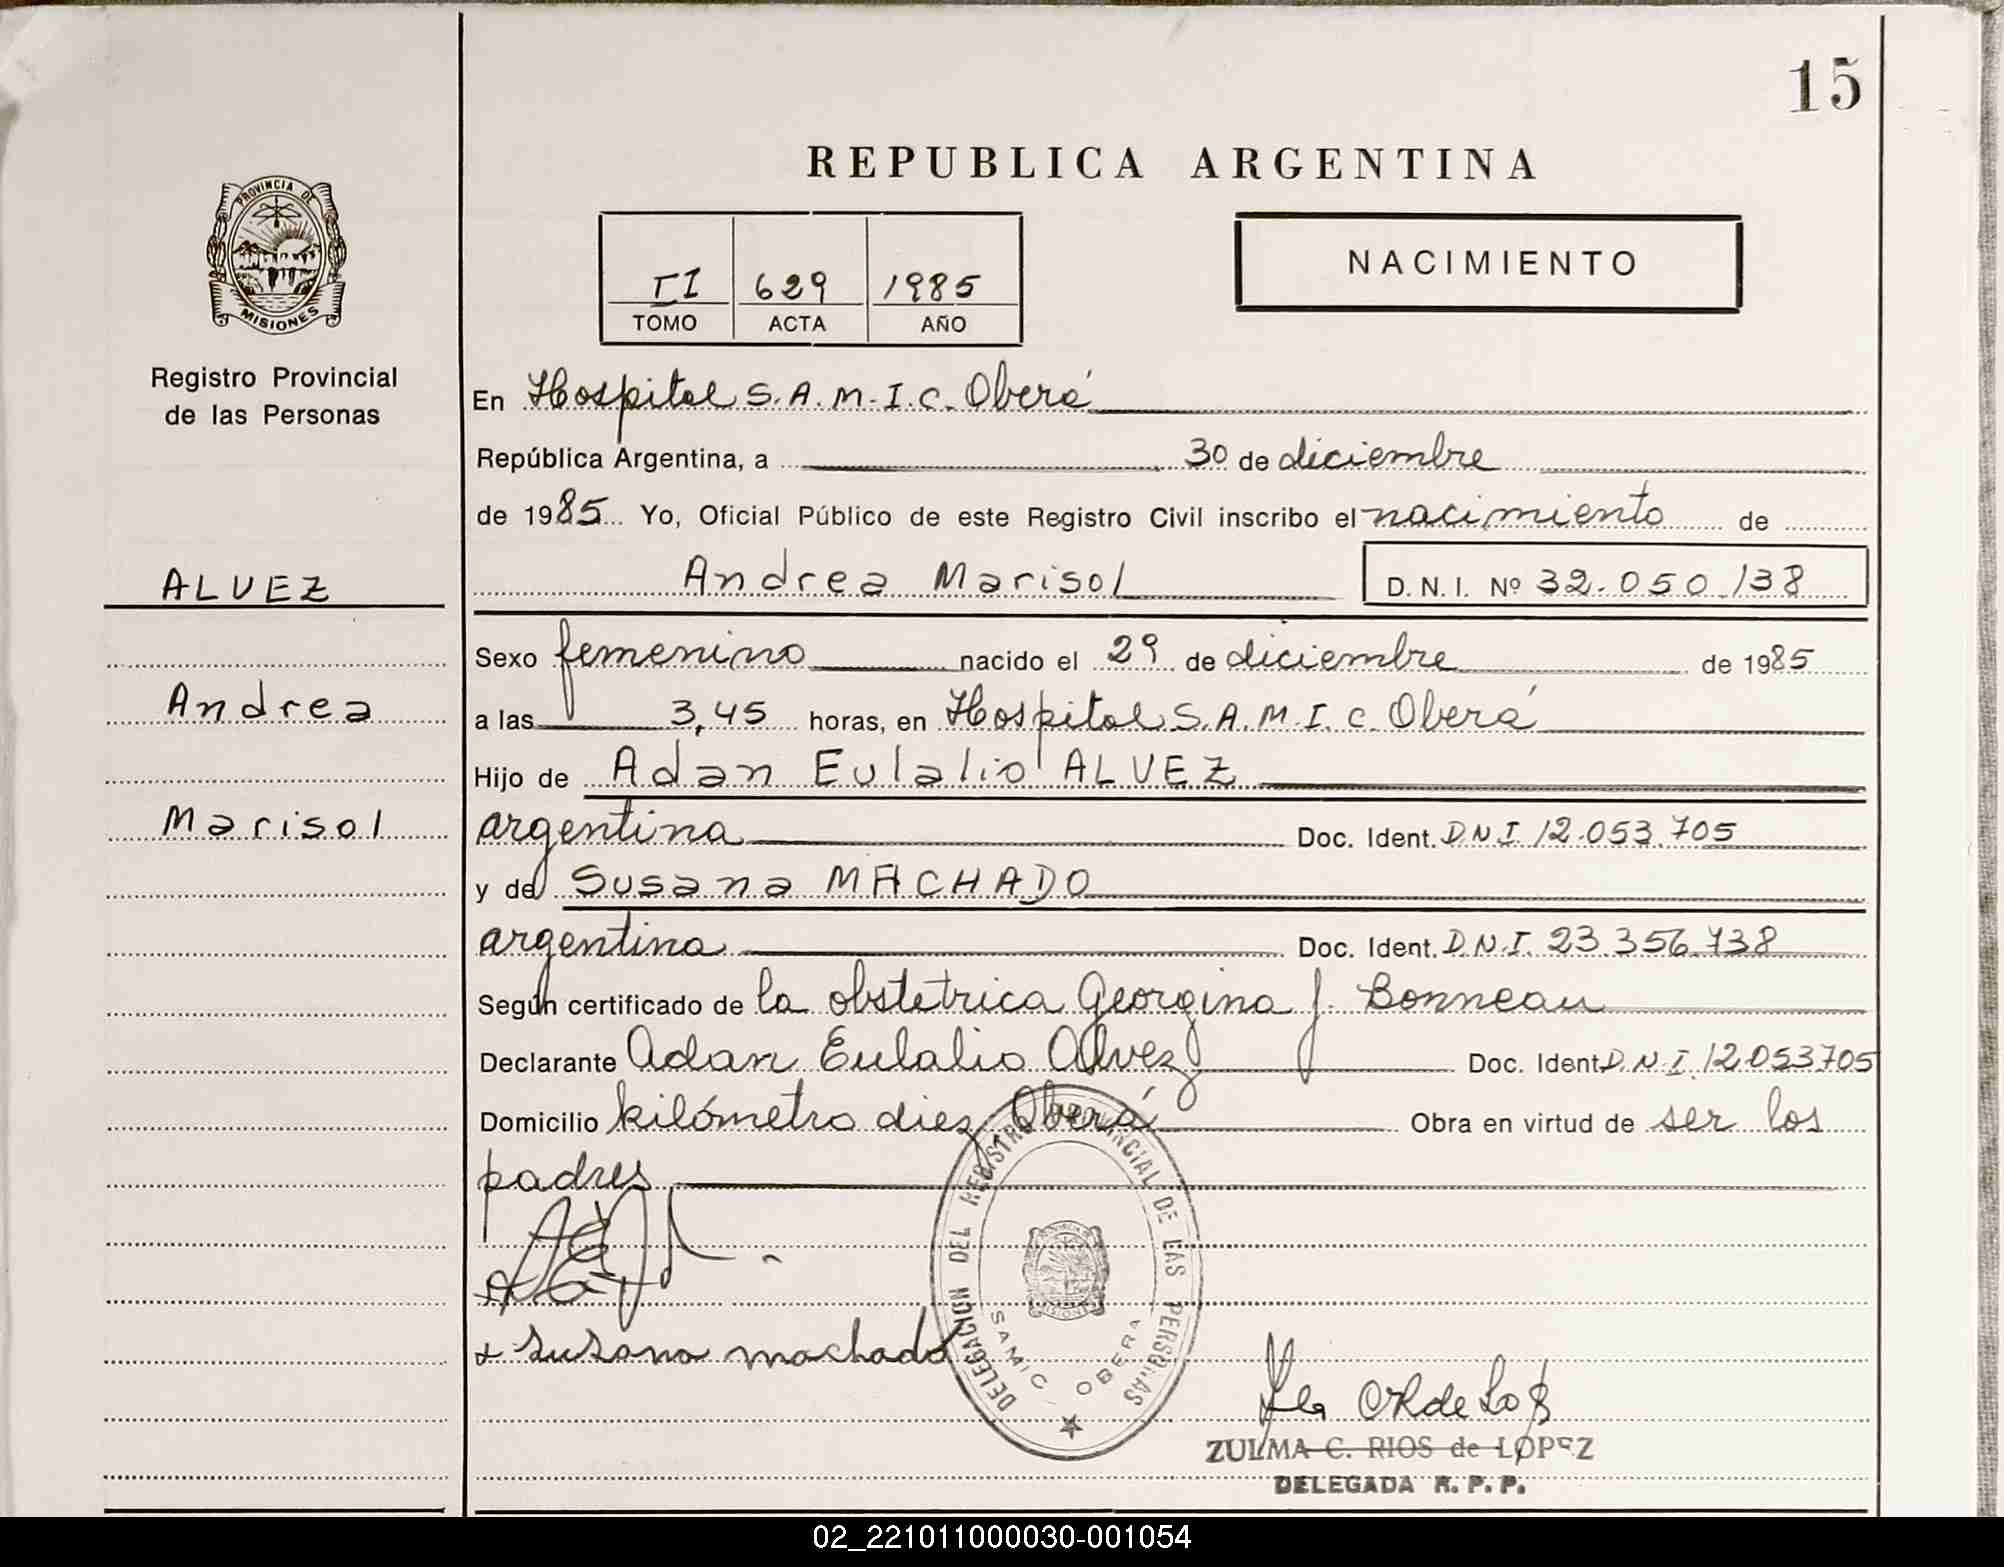 15
REPUBLICA ARGENTINA
PROVINCIA DE
MISIONES
II 629 1985
TOMO ACTA AÑO
NACIMIENTO
Registro Provincial
de las Personas
ALVEZ
Andrea
Marisol
En Hospital S.A.M.I.C. Oberá
República Argentina, a 30 de diciembre
de 1985 Yo, Oficial Público de este Registro Civil inscribo el nacimiento de
Andrea Marisol D.N.I. Nº 32.050.138
Sexo femenino nacido el 29 de diciembre de 1985
a las 3,45 horas, en Hospital S.A.M.I.C. Oberá
Hijo de Adan Eulalio ALVEZ
argentina Doc. Ident. D.N.I. 12.053.705
y de Susana MACHADO
argentina Doc. Ident. D.N.I. 23.356.738
Según certificado de la obstetrica Georgina J. Bonneau
Declarante Adan Eulalio Alvez Doc. Ident. D.N.I. 12.053705
Domicilio kilómetro diez, Oberá Obra en virtud de ser los
padres
+ susana machado
DELEGACION DEL REGISTRO PROVINCIAL DE LAS PERSONAS
SAMIC OBERA
ZULMA C. RIOS de LOPEZ
DELEGADA R.P.P.
02_221011000030-001054